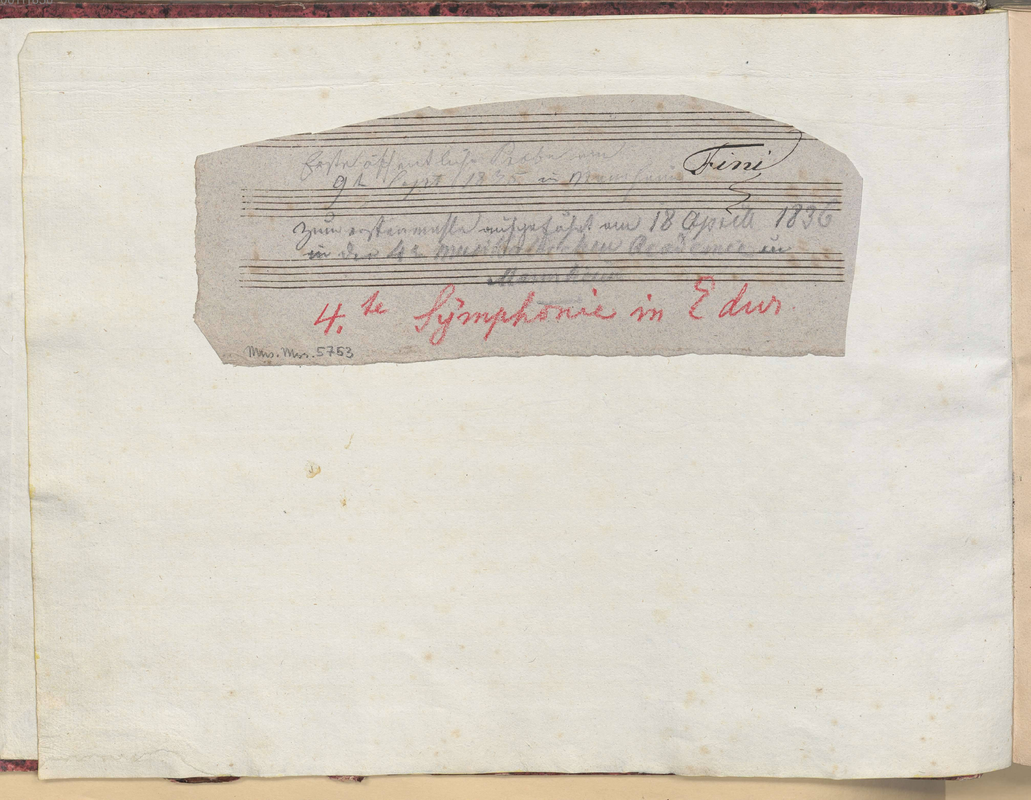 Erste öffentliche Probe am
Fini
9t Sept 1835 in Mannheim
Zum erstenmahle aufgeführt am 18 Aprill 1836
in der 4t musikalischen Academie in
Mannheim
4.te Sÿmphonie in E dur
Mus. Mss. 5753